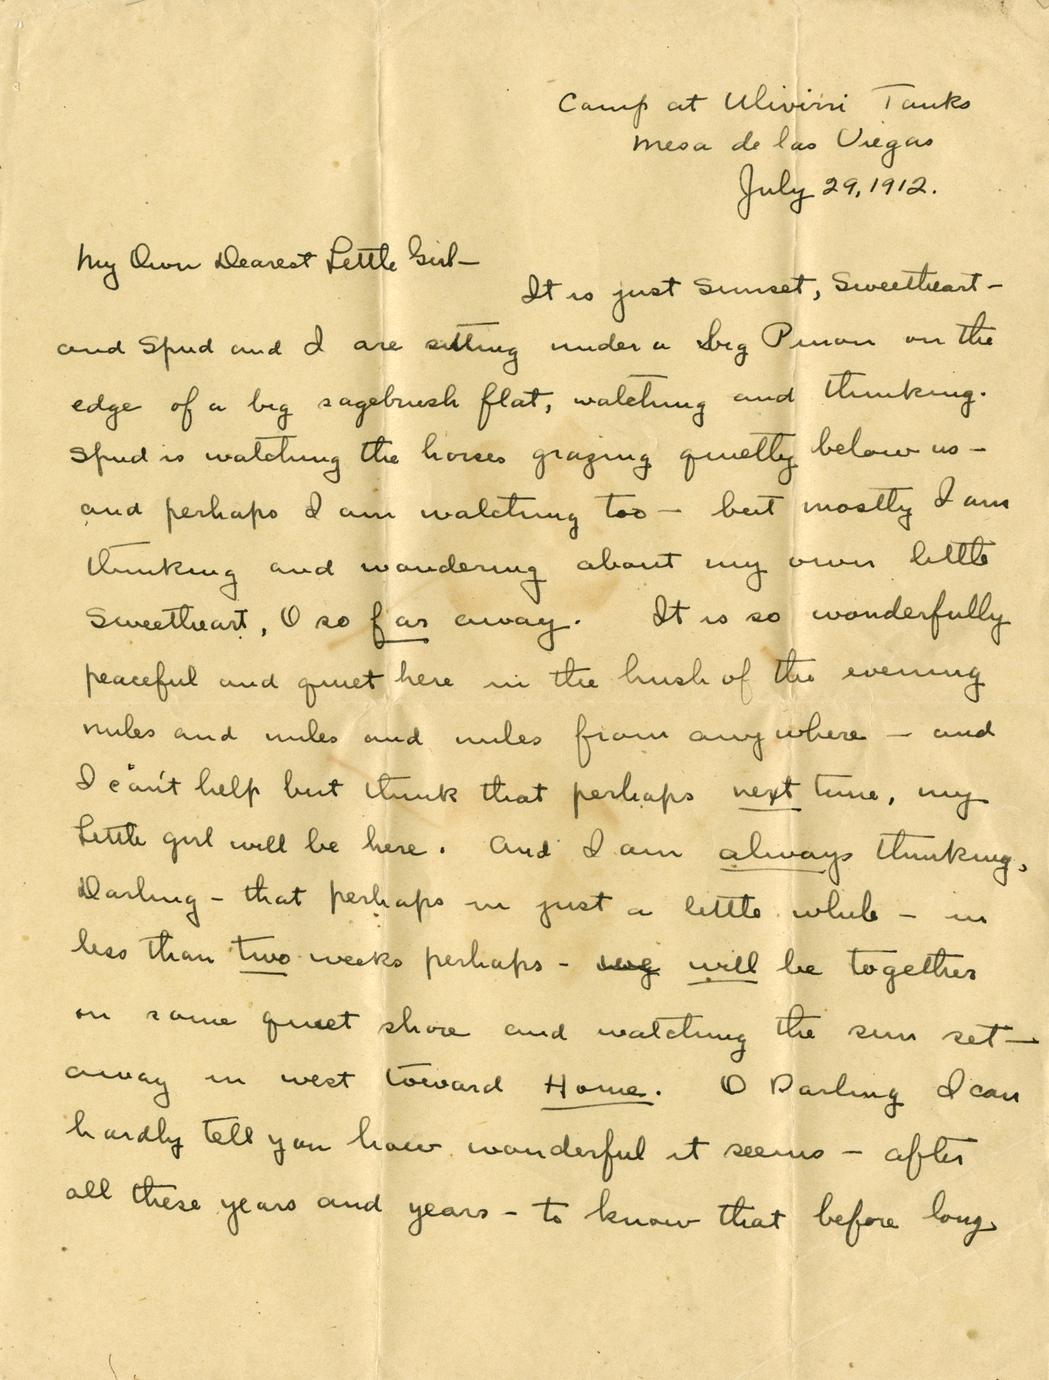 Camp at Ulivirri Tanks
Mesa de las Viegas
July 29, 1912.
My Own Dearest Little Girl—
It is just sunset, Sweetheart—
and Spud and I are sitting under a big Pinon on the
edge of a big sagebrush flat, watching and thinking.
Spud is watching the horses grazing quietly below us—
and perhaps I am watching too— but mostly I am
thinking and wondering about my own little
Sweetheart, O so far away. It is so wonderfully
peaceful and quiet here in the hush of the evening
miles and miles and miles from anywhere — and
I can't help but think that perhaps next time, my
Little girl will be here. And I am always thinking,
Darling— that perhaps in just a little while — in
less than two weeks perhaps— will be together
on some quiet shore and watching the sun set—
away in west toward Home. O Darling I can
hardly tell you how wonderful it seems — after
all these years and years— to know that before long